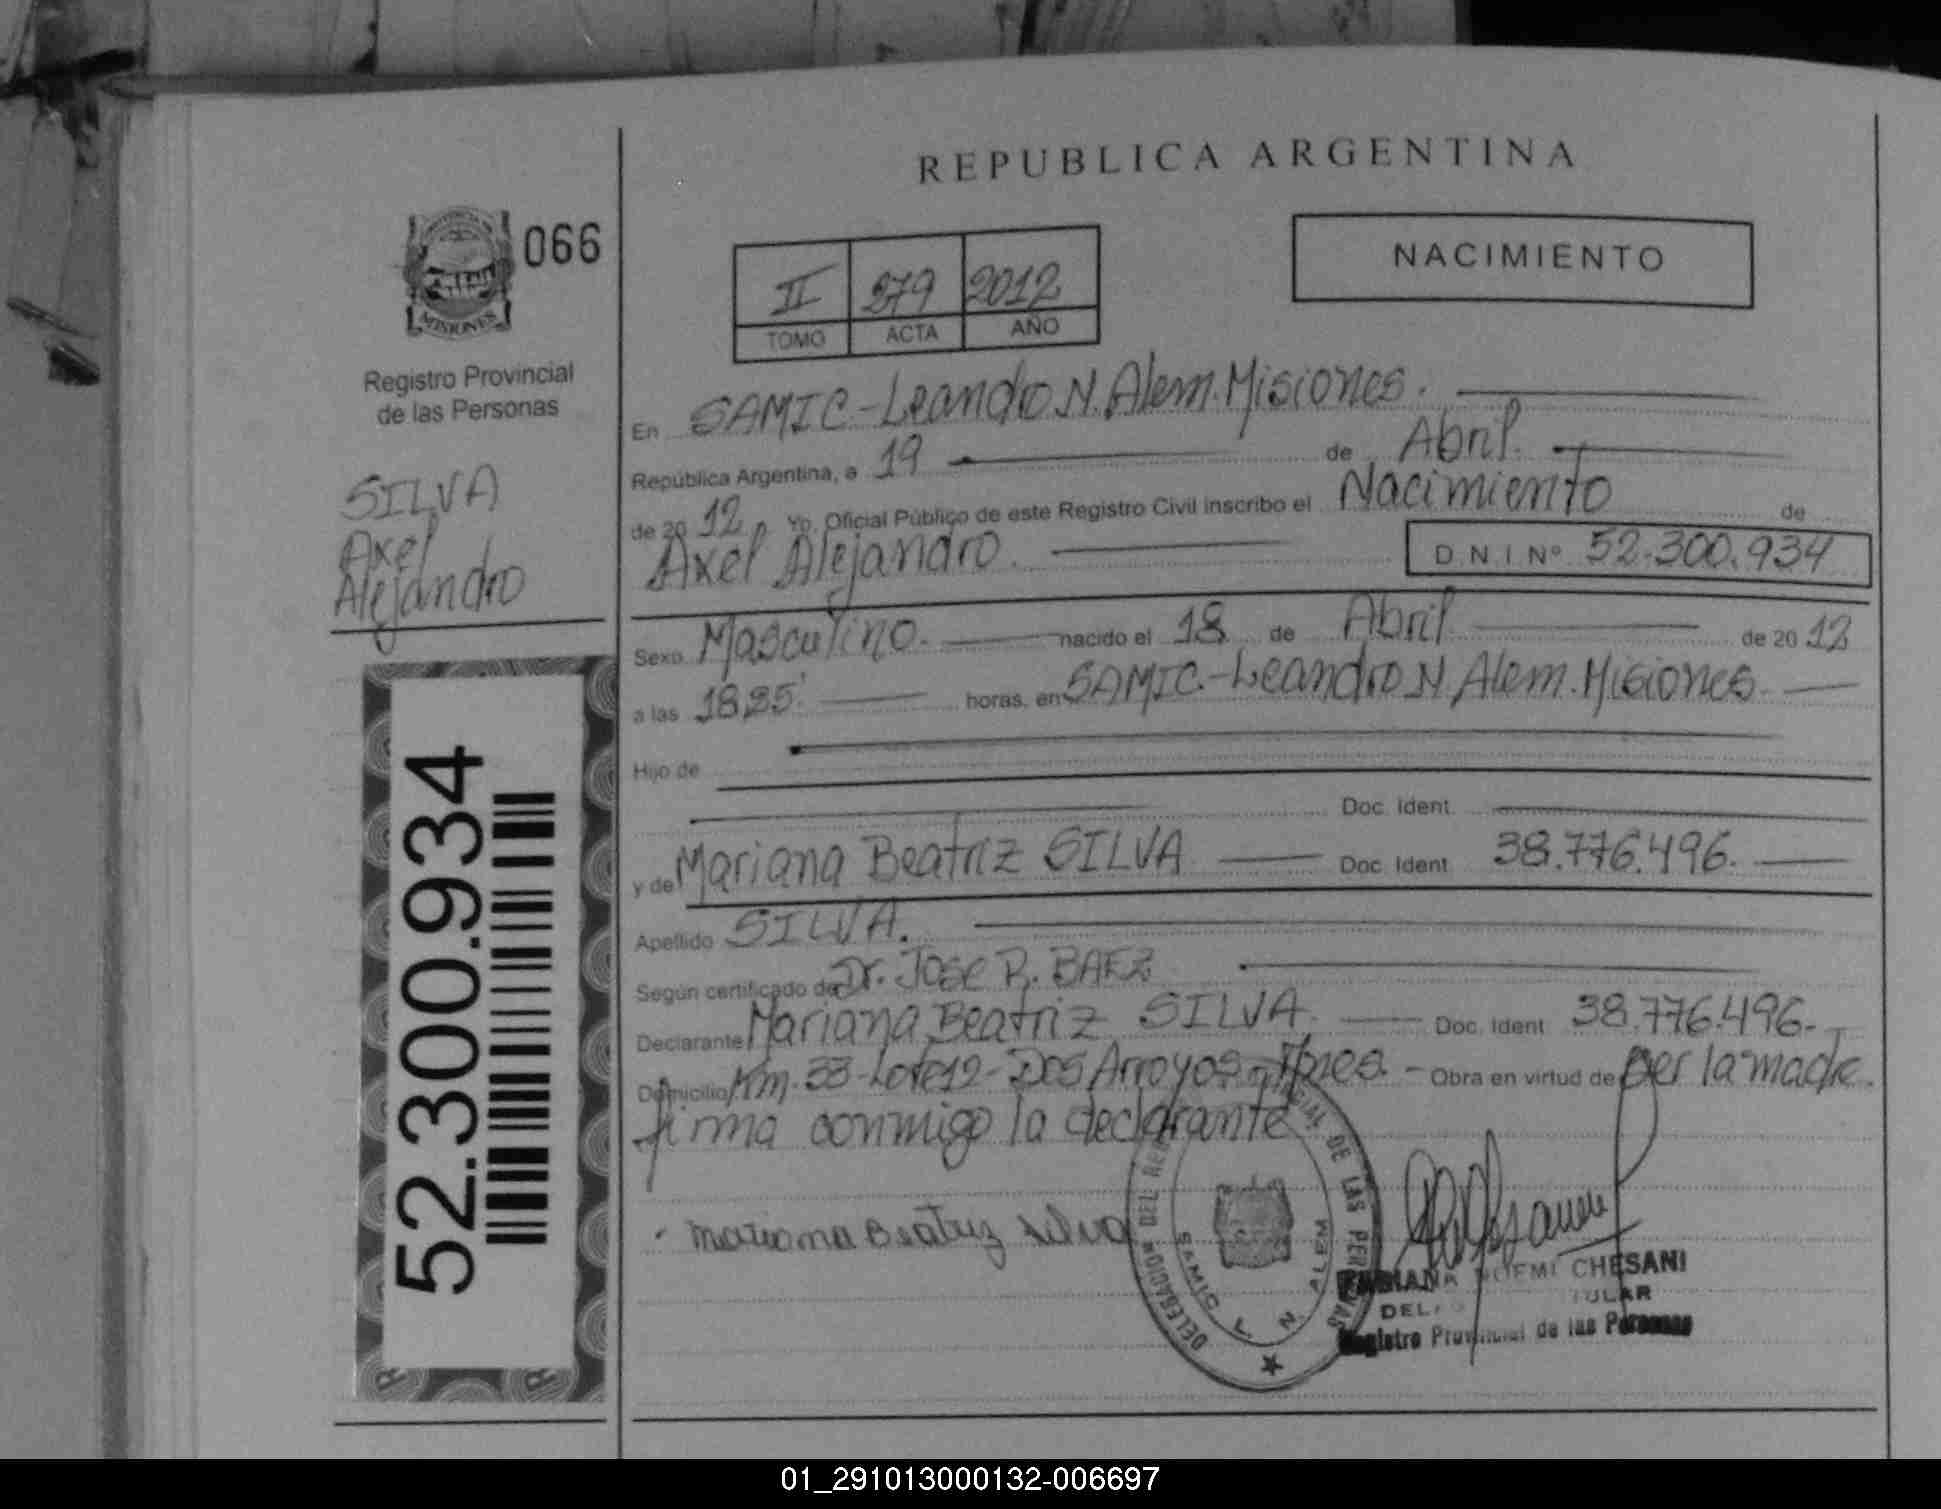 REPUBLICA ARGENTINA
066
MISIONES
Registro Provincial
de las Personas
SILVA
Axel
Alejandro
52.300.934
NACIMIENTO
II 279 2012
TOMO ACTA AÑO
En SAMIC-Leandro N. Alem. Misiones.
República Argentina, a 19 de Abril.
de 2012, Yo, Oficial Público de este Registro Civil inscribo el Nacimiento de
Axel Alejandro. D.N.I. Nº 52.300.934
Sexo Masculino. nacido el 18 de Abril de 2012
a las horas, en SAMIC-Leandro N. Alem. Misiones.
Hijo de
Doc. Ident.
y de Mariana Beatriz SILVA Doc. Ident. 38.776.496.
Apellido SILVA.
Según certificado de Dr. Jose R. BAEZ
Declarante Mariana Beatriz SILVA. Doc. Ident. 38.776.496.
Domicilio Km. 33-Lote12-Dos Arroyos- Obra en virtud de ser la madre.
firma conmigo la declarante
Mariana Beatriz Silva
DELEGACION DEL DE LAS PERSONAS
SAMIC L N ALEM
FABIANA NOEMI CHESANI
Registro Provincial de las Personas
01_291013000132-006697